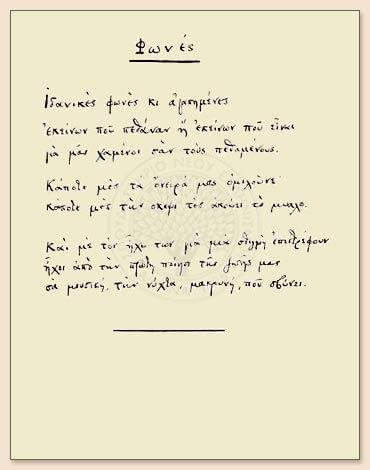 Φωνές
Ιδανικές φωνές κι αγαπημένες
εκείνων που πεθάναν ή εκείνων που είναι
για μας χαμένοι σαν τους πεθαμένους.
Κάποτε μες τα όνειρά μας ομιλούνε
κάποτε μες την σκέψι τες ακούει το μυαλό.
Και με τον ήχο των για μια στιγμή επιστρέφουν
ήχοι από την πρώτη ποίησι της ζωής μας
σα μουσική, την νύχτα, μακρυνή, που σβύνει.